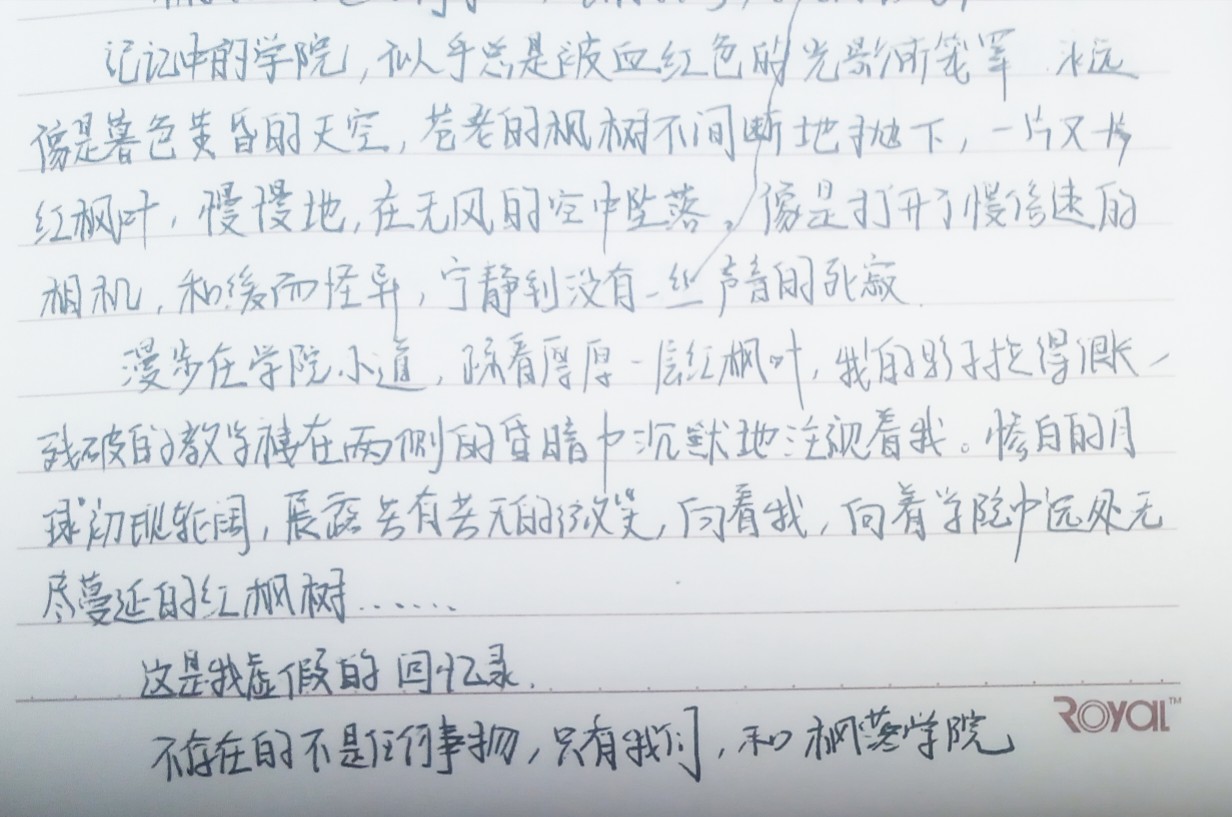 记记中的学院，似乎总是被血红色的光影所笼罩 永远
像是暮色黄昏的天空，苍老的枫树不间断地抛下，一片又一片
红枫叶，慢慢地，在无风的空中坠落。像是打开了慢倍速的
相机，和缓而怪异，宁静到没有一丝声音的死寂.
漫步在学院小道，踩着厚厚一层红枫叶，我的影子拉得很长
残破的教学楼在两侧的昏暗中沉默地注视着我。惨白的月
球初现轮阔，展露若有若无的微笑，向着我，向着学院中远处无
尽蔓延的红枫树……
这是我虚假的回忆录.
不存在的不是任何事物，只有我们，和枫落学院
ROYAL™